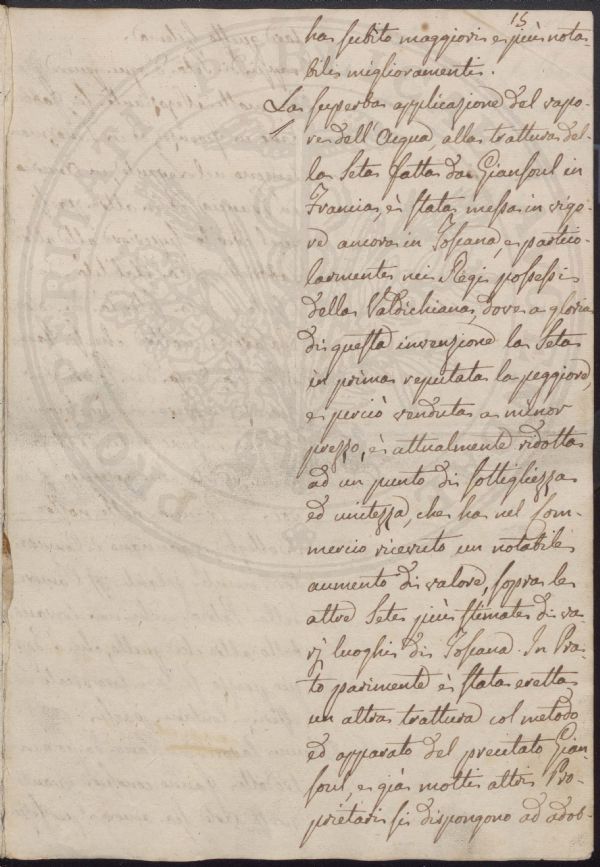 15
ha subito maggiori e più nota-
bili miglioramenti.
La superba applicazione del vapo-
re dell'Acqua, alla trattura del-
la Seta fatta da Giansoul in
Francia, è stata messa in vigo-
re ancora in Toscana, e partico-
larmente nei Regi possessi
della Valdichiana, dove a gloria
di questa invenzione la Seta
in prima reputata la peggiore,
e perciò venduta a minor
prezzo, è attualmente ridotta
ad un punto di sottigliezza
ed unitezza, che ha nel Com-
mercio ricevuto un notabile
aumento di valore, sopra le
altre Sete più stimate di va-
rj luoghi di Toscana. In Pra-
to parimente è stata eretta
un altra trattura col metodo
ed apparato del precitato Gian-
soul, e già molti altri Pro-
prietari si dispongono ad adot-